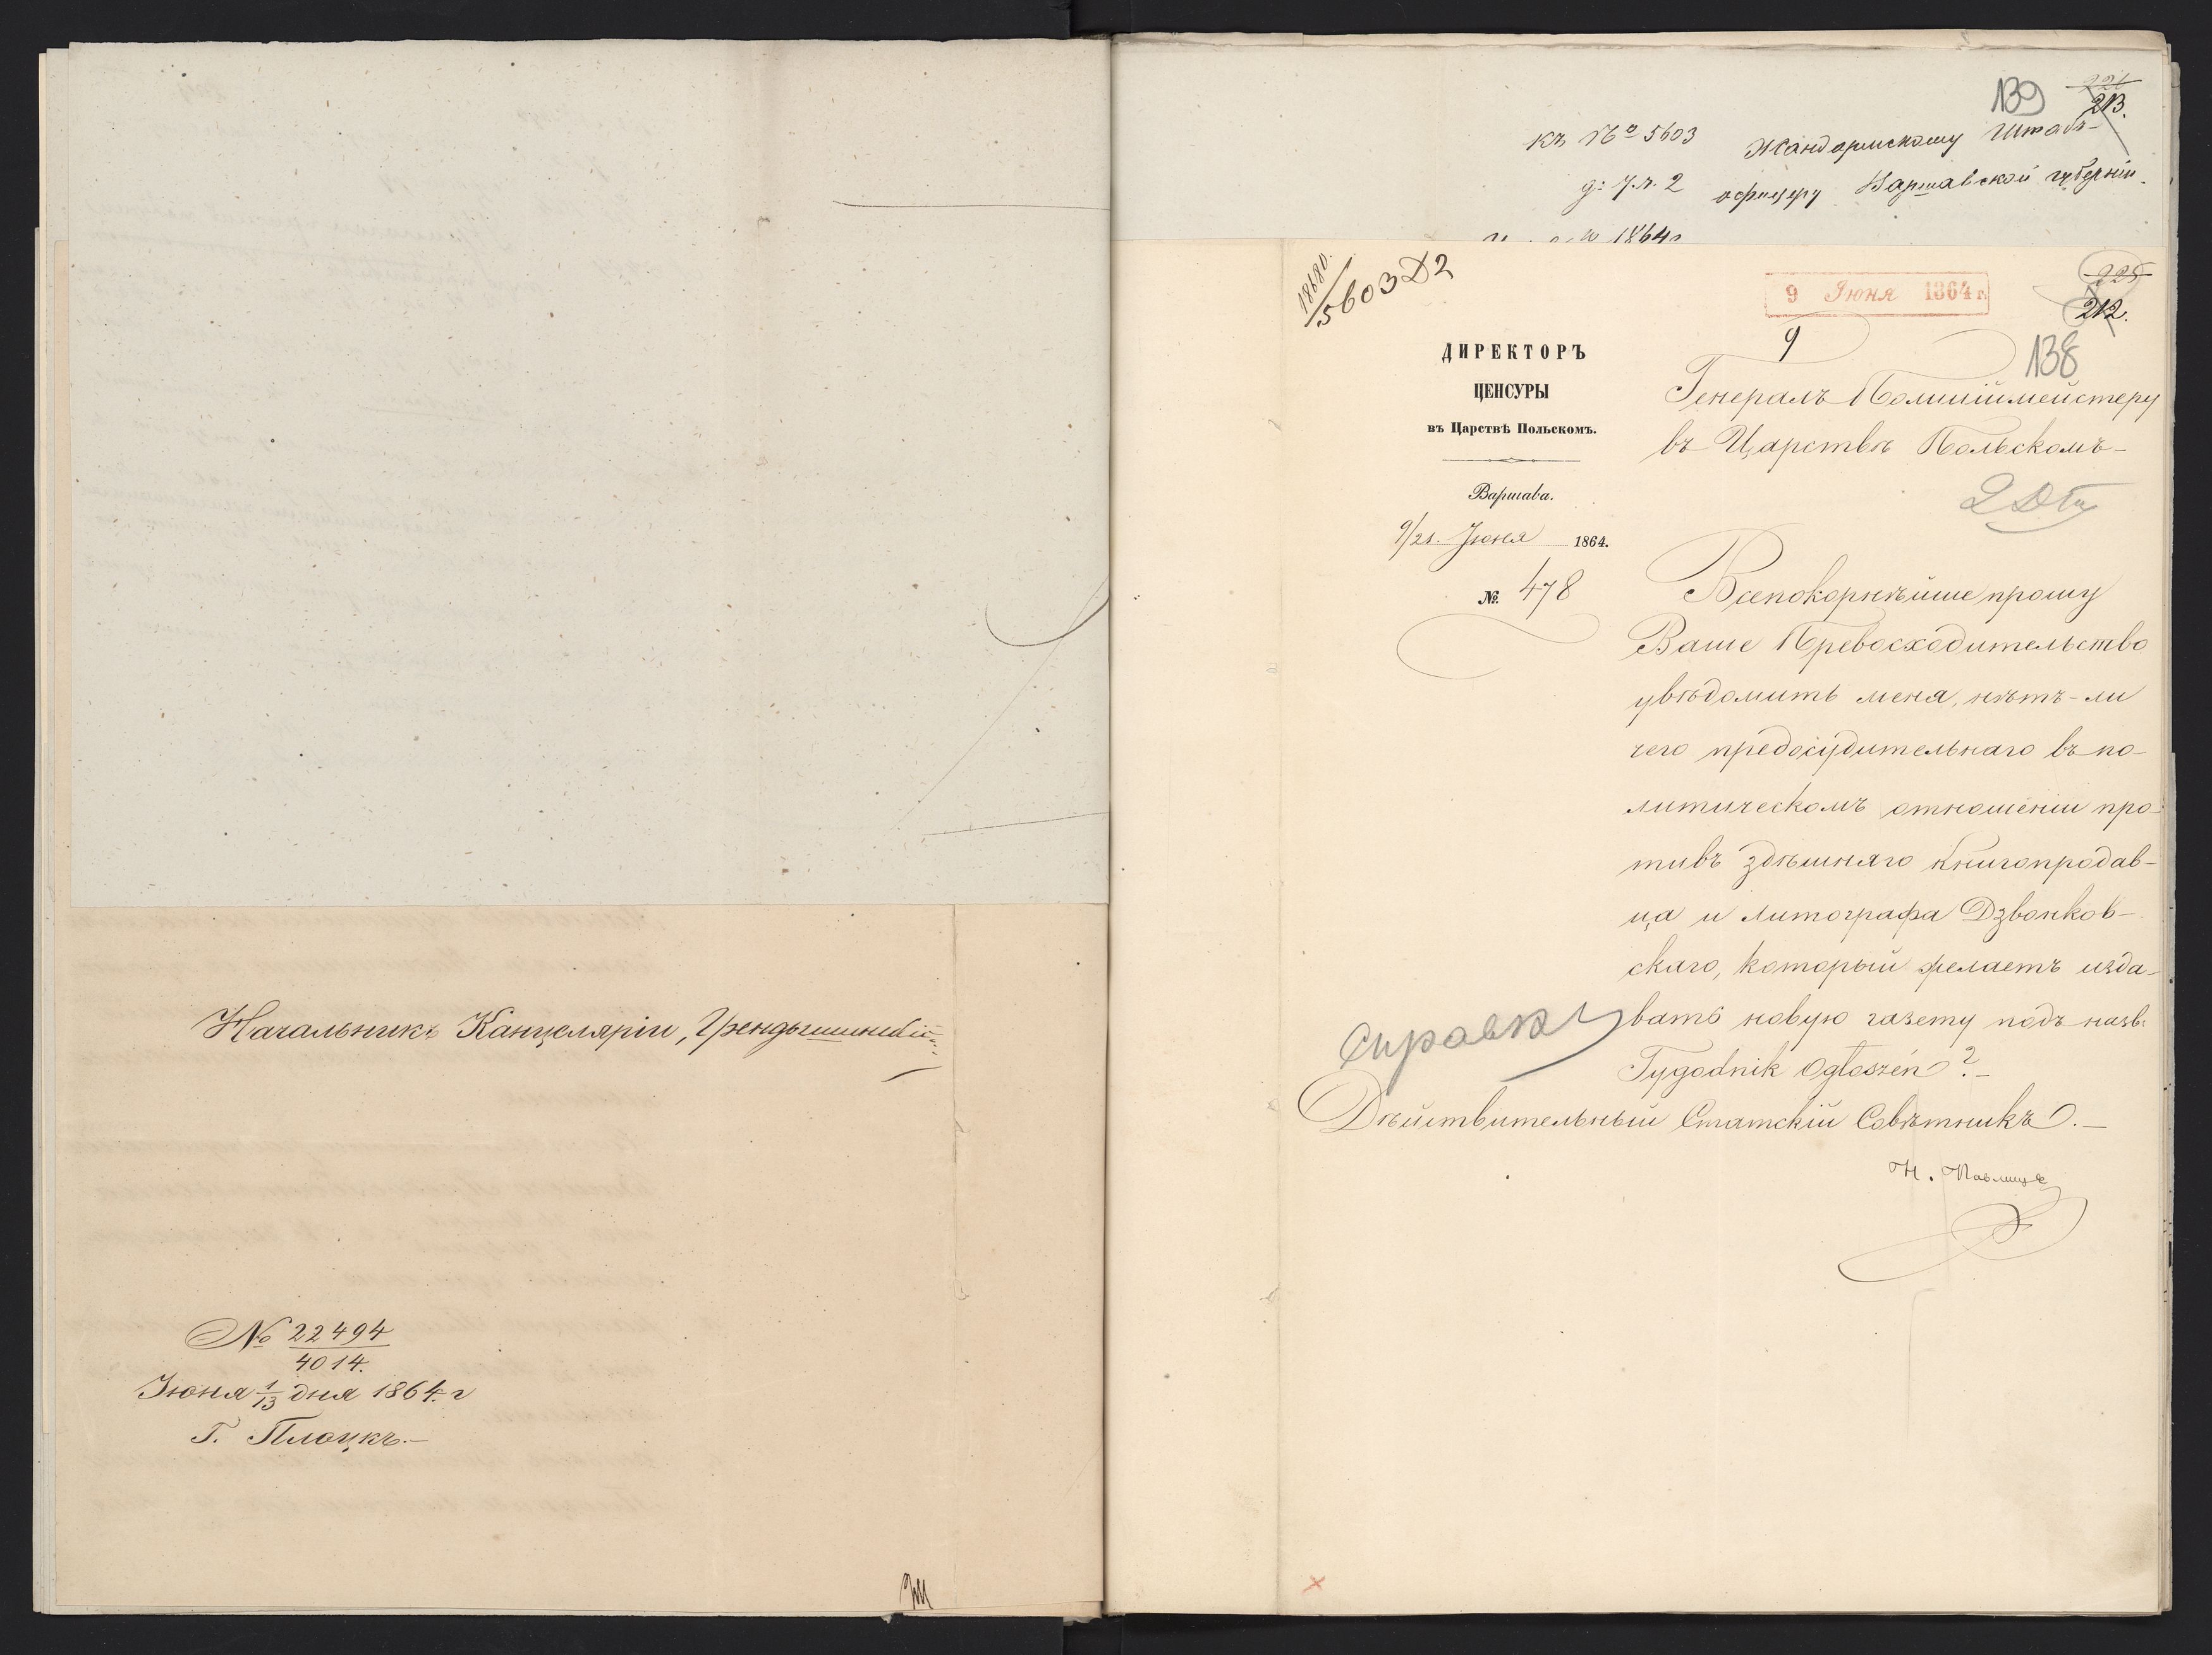 Начальникъ Канцеляріи,
№ 22494
4014.
Іюня 1/13 дня 1864 г
Г. Плоцкъ.—
139
221
213.
къ № 5603
Жандармскому Штабъ-
офицеру Варшавской губерніи.
1864
18680.
5603 Д2
9 Іюня 1864 г.
225
212.
9
138
ДИРЕКТОРЪ
ЦЕНСУРЫ
въ Царствѣ Польскомъ.
Варшава.
9/21. Іюня 1864.
№ 478
Генералъ Полиціймейстеру
въ Царствѣ Польскомъ—
Всепокорнѣйше прошу
Ваше Превосходительство
увѣдомить меня, нѣтъ-ли
чего предосудительнаго въ по-
литическомъ отношеніи про-
тивъ здѣшняго книгопродав-
ца и литографа Дзвонков-
скаго, который желаетъ изда-
вать новую газету подъ назв:
Tygodnik Ogłoszeń?—
Справку
Дѣйствительный Статскій Совѣтникъ.—
Н. Павлищевъ